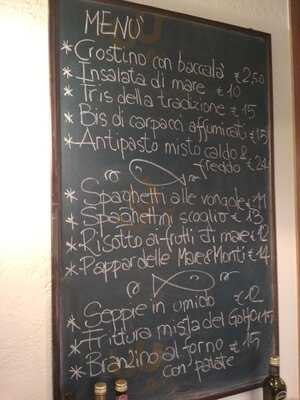 MENU'
* Crostino con baccalà €2,50
* Insalata di mare €10
* Tris della tradizione €15
* Bis di carpacci affumicati €15
* Antipasto misto caldo &
freddo €24
* Spaghetti alle vongole €11
* Spaghettini scoglio €13
* Risotto ai frutti di mare €12
* Pappardelle Mare&Monti €14
* Seppie in umido €12
* Frittura mista del Golfo €15
* Branzino al forno €15
con patate